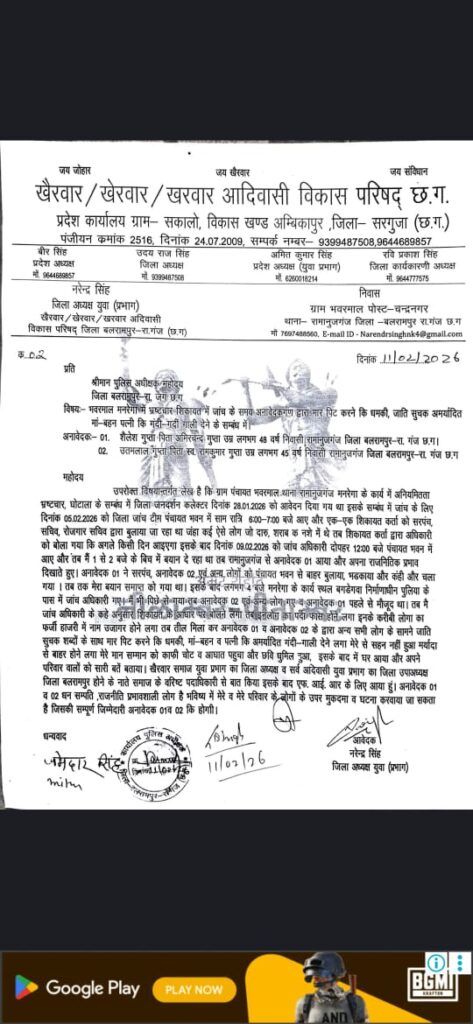 जय जोहार जय खैरवार जय संविधान
खैरवार/खेरवार/खरवार आदिवासी विकास परिषद् छ.ग.
प्रदेश कार्यालय ग्राम- सकालो, विकास खण्ड अम्बिकापुर ,जिला- सरगुजा (छ.ग.)
पंजीयन कमांक 2516, दिनांक 24.07.2009, सम्पर्क नम्बर- 9399487508,9644689857
बीर सिंह उदय राज सिंह अमित कुमार सिंह रवि प्रकाश सिंह
प्रदेश अध्यक्ष जिला अध्यक्ष प्रदेश अध्यक्ष (युवा प्रभाग) जिला कार्यकारणी अध्यक्ष
मो. 9644689857 मो. 9399487508 मो. 6260018214 मो. 9644777575
नरेन्द्र सिंह निवास
जिला अध्यक्ष युवा (प्रभाग) ग्राम भवरमाल पोस्ट-चन्द्रनगर
खैरवार/खेरवार/खरवार आदिवासी थाना- रामानुजगंज जिला -बलरामपुर रा.गंज छ.ग.
विकास परिषद् जिला बलरामपुर-रा.गंज (छ.ग) मो 7697488560, E-mail ID - Narendrsinghnk4@gmail.com
क्र.02 दिनांक 11/02/2026
प्रति
श्रीमान पुलिस अधीक्षक महोदय
जिला बलरामपुर- रा. जग छ.ग
विषय- भवरमाल मनरेगा में भ्रष्टचार शिकायत में जांच के समय अनावेदकगण द्वारा मार पिट करने कि धमकी, जाति सुचक अमर्यादित
मां-बहन पत्नी कि गंदी-गंदी गाली देने के सम्बंध में।
अनावेदक- 01. शैलेश गुप्ता पिता अमिरचन्द गुप्ता उम्र लगभग 48 वर्ष निवासी रामानुजगंज जिला बलरामपुर-रा. गंज छ.ग।
02. उतमलाल गुप्ता पिता स्व. रामकुमार गुप्ता उम्र लगभग 45 वर्ष निवासी रामानुजगंज जिला बलरामपुर-रा. गंज छ.ग।
महोदय
उपरोक्त विषयान्तर्गत लेख है कि ग्राम पंचायत भवरमाल थाना रामानुजगंज मनरेगा के कार्य में अनियमितता
भ्रष्टचार, घोटाला के सम्बंध में जिला जनदर्शन कलेक्टर दिनांक 28.01.2026 को आवेदन दिया गया था इसके सम्बंध में जांच के लिए
दिनांक 05.02.2026 को जिला जांच टीम पंचायत भवन में साम रात्रि 6:00-7:00 बजे आए और एक-एक शिकायत कर्ता को सरपंच,
सचिव, रोजगार सचिव द्वारा बुलाया जा रहा था जंहा कई ऐसे लोग जो दारू, शराब क नशे में थे तब शिकायत कर्ता द्वारा अधिकारी
को बोला गया कि अगले किसी दिन आइएगा इसके बाद दिनांक 09.02.2026 को जांच अधिकारी दोपहर 12:00 बजे पंचायत भवन में
आए और तब मैं 1 से 2 बजे के बिच में बयान दे रहा था तब रामानुजगंज से अनावेदक 01 आया और अपना राजमित्रिक प्रभाव
दिखाते हुए। अनावेदक 01 ने सरपंच, अनावेदक 02 एवं अन्य लोगों को पंचायत भवन से बाहर बुलाया, भडकाया और कंही और चला
गया । तब तक मेरा बयान समाप्त को गया था। इसके बाद लगभग 4 बजे मनरेगा के कार्य स्थल बगडेगवा निर्माणाधीन पुलिया के
पास में जांच अधिकारी गए। में भी पिछे से गया तब अनावेदक 02 एवं अन्य लोग गए व अनावेदक 01 पहले से मौजूद था। तब मै
जांच अधिकारी के कहे अनुसार शिकायत के आधार पर बोलने लगा
फर्जी हाजरी में नाम उजागर होने लगा तब तील मिला कर अनावेदक 01 व अनावेदक 02 के द्वारा अन्य सभी लोग के सामने जाति
सुचक शब्दों के साथ मार पिट करने कि धमकी, मां-बहन व पत्नी कि अमर्यादित गंदी-गाली देने लगा मेरे से सहन नहीं हुआ मर्यादा
से बाहर होने लगा मेरे मान सम्मान को काफी चोट व आघात पहुचा और छवि धुमिल हुआ, इसके बाद में घर आया और अपने
परिवार वालों को सारी बतें बताया। खैरवार समाज युवा प्रभाग का जिला अध्यक्ष व सर्व आदिवासी युवा प्रभाग का जिला उपाध्यक्ष
जिला बलरामपुर होने के नाते समाज के वरिष्ट पदाधिकारी से बात किया इसके बाद एफ. आई. आर के लिए आया हूं। अनावेदक 01
व 02 धन सम्पति ,राजनीति प्रभावशाली लोग है भविष्य में मेरे व मेरे परिवार के लोगों के उपर मुकदमा व घटना करवाया जा सकता
है जिसकी सम्पूर्ण जिम्मेदारी अनावेदक 01व 02 कि होगी।
धन्यवाद आवेदक
जमेदार सिंह नरेन्द्र सिंह
11/02/26 जिला अध्यक्ष युवा (प्रभाग)
Google Play
PLAY NOW
AND
BGMI
KRAFTON